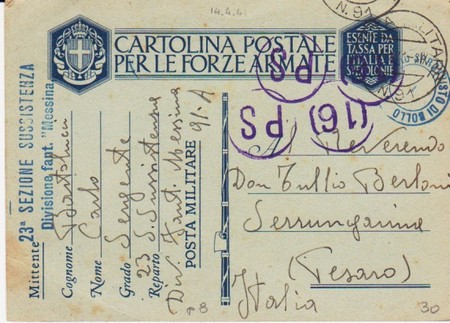 14.4.41
CARTOLINA POSTALE
PER LE FORZE ARMATE
ESENTE DA
TASSA PER
L'ITALIA E
COLONIE
N. 91
PS
PS
(16)
POSTO DI BOLLO
23ª SEZIONE SUSSISTENZA
Divisione fant. "Messina
Mittente
Cognome
Nome Carlo
Grado Sergente
Reparto 23 S. Sussistenza
Div. Fant. Messina
POSTA MILITARE 91-A
Al Reverendo
Don Tullio Berloni
Serrungarina
(Pesaro)
Italia
P8
30